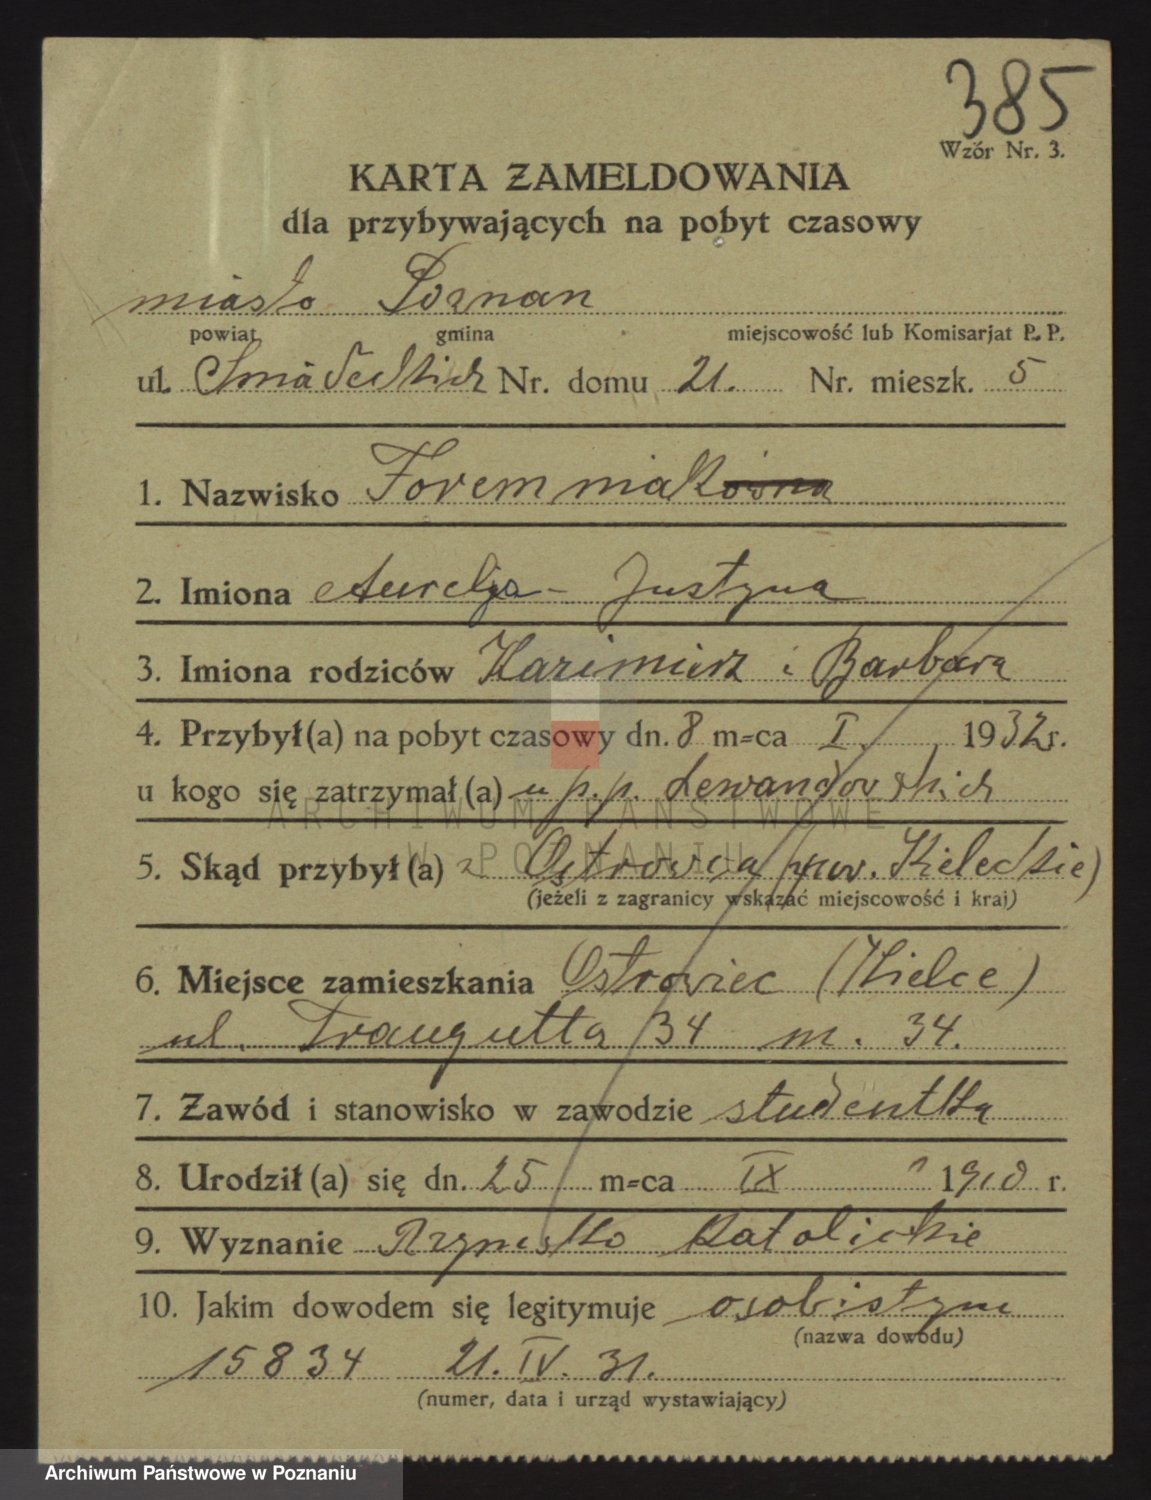 385
Wzór Nr. 3.
KARTA ZAMELDOWANIA
dla przybywających na pobyt czasowy
miasto Poznan
powiat gmina miejscowość lub Komisarjat P. P.
ul. Śniadeckich Nr. domu 21. Nr. mieszk. 5
1. Nazwisko Foremniakówna
2. Imiona Aurelja - Justyna
3. Imiona rodziców Kazimierz i Barbara
4. Przybył(a) na pobyt czasowy dn. 8 m=ca I. 1932 r.
u kogo się zatrzymał(a) u p.p. Lewandowskich
ARCHIWUM PAŃSTWOWE
W POZNANIU
5. Skąd przybył(a) z Ostrowca pow. Kieleckie)
(jeżeli z zagranicy wskazać miejscowość i kraj)
6. Miejsce zamieszkania Ostrowiec (Kielce)
ul. Traugutta 34 m. 34.
7. Zawód i stanowisko w zawodzie studentka
8. Urodził(a) się dn. 25 m=ca IX 1910 r.
9. Wyznanie Rzymsko Katolickie
10. Jakim dowodem się legitymuje osobistym
(nazwa dowodu)
15834 21. IV. 31.
(numer, data i urząd wystawiający)
Archiwum Państwowe w Poznaniu